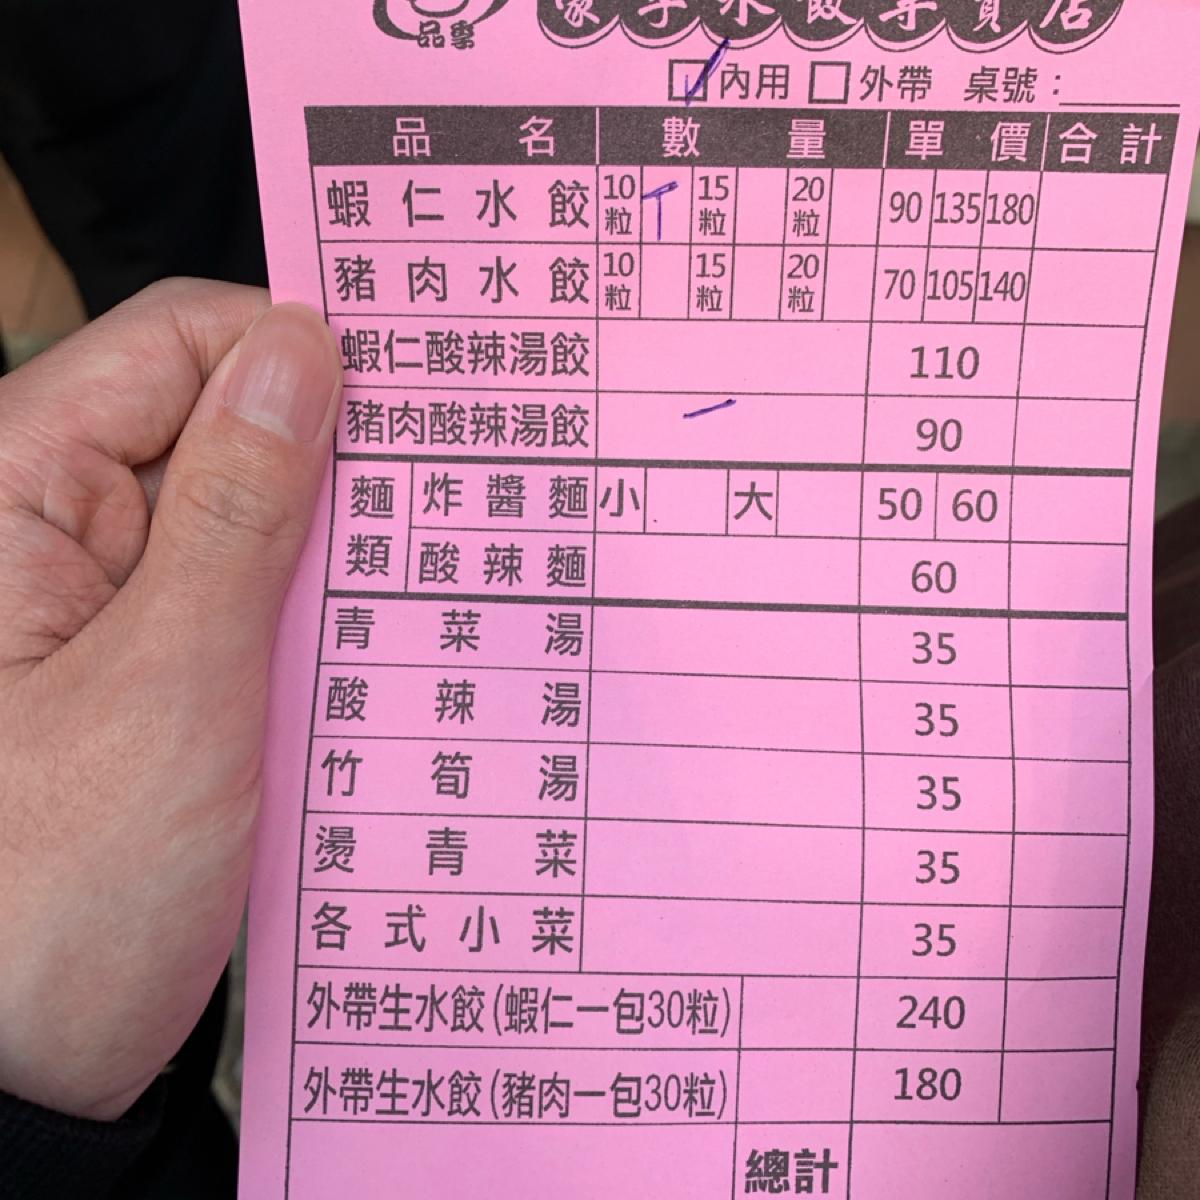 品季
水餃專賣店
內用 外帶 桌號:
品名 數量 單價 合計
蝦仁水餃 10粒 15粒 20粒 90 135 180
豬肉水餃 10粒 15粒 20粒 70 105 140
蝦仁酸辣湯餃 110
豬肉酸辣湯餃 90
麵類 炸醬麵 小 大 50 60
酸辣麵 60
青菜湯 35
酸辣湯 35
竹筍湯 35
燙青菜 35
各式小菜 35
外帶生水餃(蝦仁一包30粒) 240
外帶生水餃(豬肉一包30粒) 180
總計